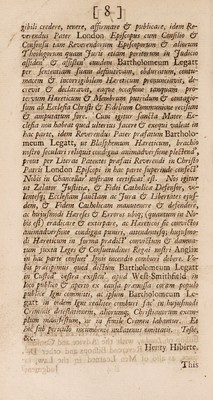 [ 8 ]
gibili credere, tenere, asseverare & publicare, idem Re-
verendus Pater London Episcopus cum Consilio &
Consensu tam Reverendorum Episcoporum & aliorum
Theologorum quam Juris etiam peritorum in Judicio
assiden' & assisten' eundem Bartholomeum Legatt
per sententiam suam definitivam, obduratum, contu-
macem & incorrigibilem Hereticum pronunciavit, de-
crevit & declaravit, eaque occasione tanquam pro-
tervum Hereticum & Membrum putridum & contagio-
sum ab Ecclesia Christi & Fidelium Communione recisum
& amputatum fore. Cum igitur sancta Mater Ec-
clesia non habeat quod ulterius facere & exequi valeat in
hac parte, idem Reverendus Pater præfatum Bartholo-
meum Legatt, ut Blasphemum Hæreticum, brachio
nostro seculari reliquit condigna animadversione plectend',
prout per Literas Patentes præfati Reverendi in Christo
Patris London Episcopi in hac parte superinde confect'
Nobis in Chancellar' nostram certificat' est. Nos igitur
ut Zelator Justitiæ, & Fidei Catholicæ Defensor, vo-
lentesq; Ecclesiam sanctam ac Jura & Libertates ejus-
dem, & Fidem Catholicam manutenere & defendere,
ac hujusmodi Hæreses & Errores ubiq; (quantum in No-
bis est) eradicare & extirpare, ac Hæreticos sic convictos
animadversione condigna puniri, attendentesq; hujusmo-
di Hæreticum in forma prædict' convictum & damna-
tum juxta Leges & Consuetudines Regni nostri Angliæ
in hac parte consuet' Ignis incendio comburi debere. Vo-
bis præcipimus quod dictum Bartholomeum Legatt
in Custod' vestra existen', apud West-Smithfield in
loco publico & aperto ex causa præmissa coram populo
publice Igni committi, ac ipsum Bartholomeum Le-
gatt in eodem Igne realiter comburi fac' in hujusmodi
Criminis detestationem, aliorumq; Christianorum exem-
plum manifestum, ne in simile Crimen labantur. Et
hoc sub periculo incumbente nullatenus omittatis. Teste,
&c.
Henry Hibirte.
This